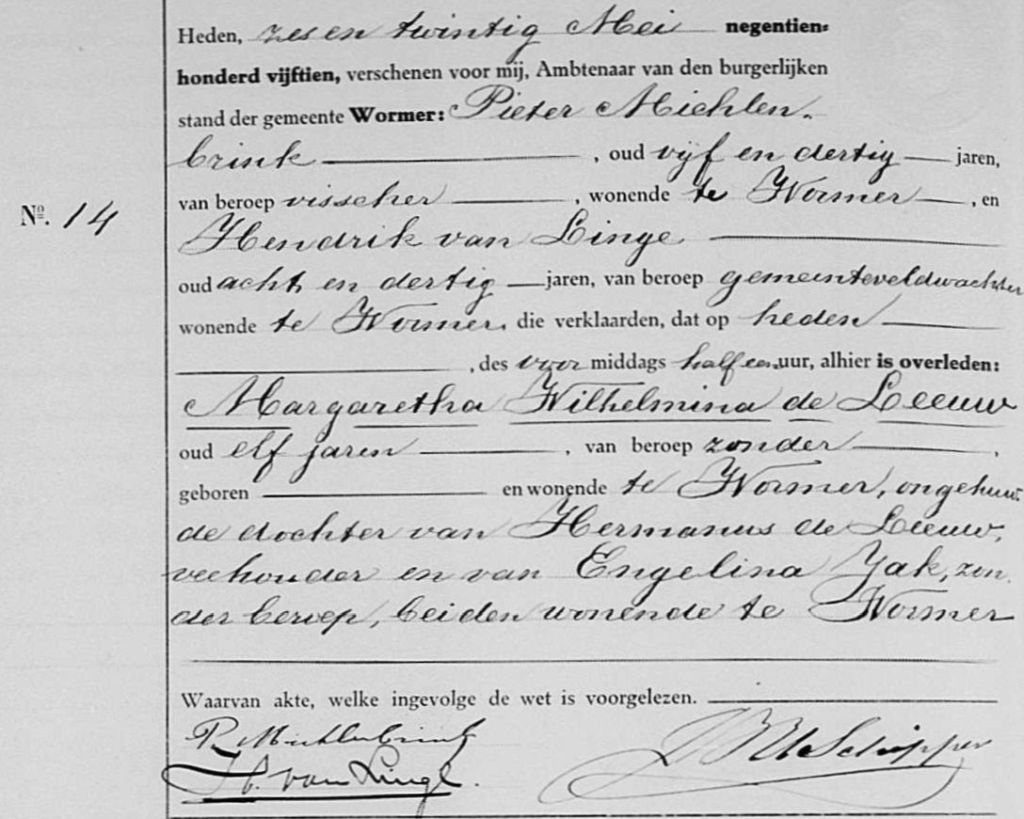 Heden, zes en twintig Mei negentien-
honderd vijftien, verschenen voor mij, Ambtenaar van den burgerlijken
stand der gemeente Wormer: Pieter Michlen-
brink , oud vijf en dertig jaren,
van beroep visscher , wonende te Wormer , en
Nº. 14
Hendrik van Linge
oud acht en dertig jaren, van beroep gemeenteveldwachter
wonende te Wormer, die verklaarden, dat op heden
, des voor middags half een uur, alhier is overleden:
Margaretha Wilhelmina de Leeuw
oud elf jaren , van beroep zonder ,
geboren en wonende te Wormer, ongehuw-
de dochter van Hermanus de Leeuw,
veehouder en van Engelina Jak, zon-
der beroep, beiden wonende te Wormer
Waarvan akte, welke ingevolge de wet is voorgelezen.
P. Michlenbrink
H. van Linge.
Schipper